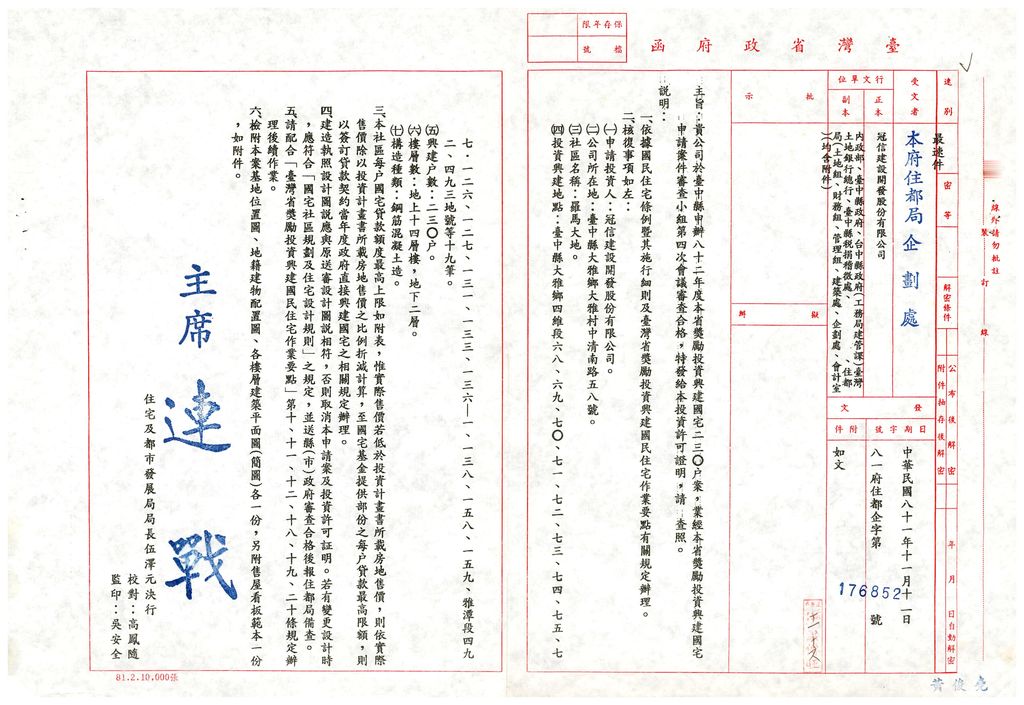 臺灣省政府函
保存年限
檔號
速別
最速件
密等
解密條件
公布後解密
附件抽存後解密
年月日自動解密
受文者
本府住都局企劃處
行文單位
正本
冠信建設開發股份有限公司
副本
內政部、臺中縣政府、台中縣政府(工務局建管課)臺灣
土地銀行總行、臺中縣稅捐稽徵處、、住都
局(土地組、財務組、管理組、建築處、企劃處、會計室
)(均含附件)
發文
日期
中華民國八十一年十一月十一日
字號
八一府住都企字第176852號
附件
如文
批示
擬辦
主旨：貴公司於臺中縣申辦八十二年度本省獎勵投資興建國宅二三〇户案，業經本省獎勵投資興建國宅
申請案件審查小組第四次會議審查合格，特發給本投資許可證明，請查照。
說明：
一、依據國民住宅條例暨其施行細則及臺灣省獎勵投資興建國民住宅作業要點有關規定辦理。
二、核復事項如左：
(一)申請投資人：冠信建設開發股份有限公司。
(二)公司所在地：臺中縣大雅鄉大雅村中清南路五八號。
(三)社區名稱：羅馬大地。
(四)投資興建地點：臺中縣大雅鄉四維段六八、六九、七〇、七一、七二、七三、七四、七五、七
七、一二六、一二七、一三一、一三三、一三六—一、一三八、一五八、一五九、雅潭段四九
二、四九三地號等十九筆。
(五)興建户數：二三〇户。
(六)樓層數：地上十四層樓，地下二層。
(七)構造種類：鋼筋混凝土造。
三、本社區每户國宅貸款額度最高上限如附表，惟實際售價若低於投資計畫書所載房地售價，則依實際
售價除以投資計畫書所載房地售價之比例折減計算，至國宅基金提供部份之每户貸款最高限額，則
以簽訂貸款契約當年度政府直接興建國宅之相關規定辦理。
四、建造執照設計圖說應與原送審設計圖說相符，否則取消本申請案及投資許可証明。若有變更設計時
，應符合「國宅社區規劃及住宅設計規則」之規定，並送縣(市)政府審查合格後報住都局備查。
五、請配合「臺灣省獎勵投資興建國民住宅作業要點」第十、十一、十二、十八、十九、二十條規定辦
理後續作業。
六、檢附本案基地位置圖、地籍建物配置圖、各樓層建築平面圖(簡圖)各一份，另附售屋看板範本一份
，如附件。
主席 連戰
住宅及都市發展局局長伍澤元決行
校對：高鳳隨
監印：吳安全
81.2.10,000張
裝
訂
線
線外請勿批註
黃俊亮